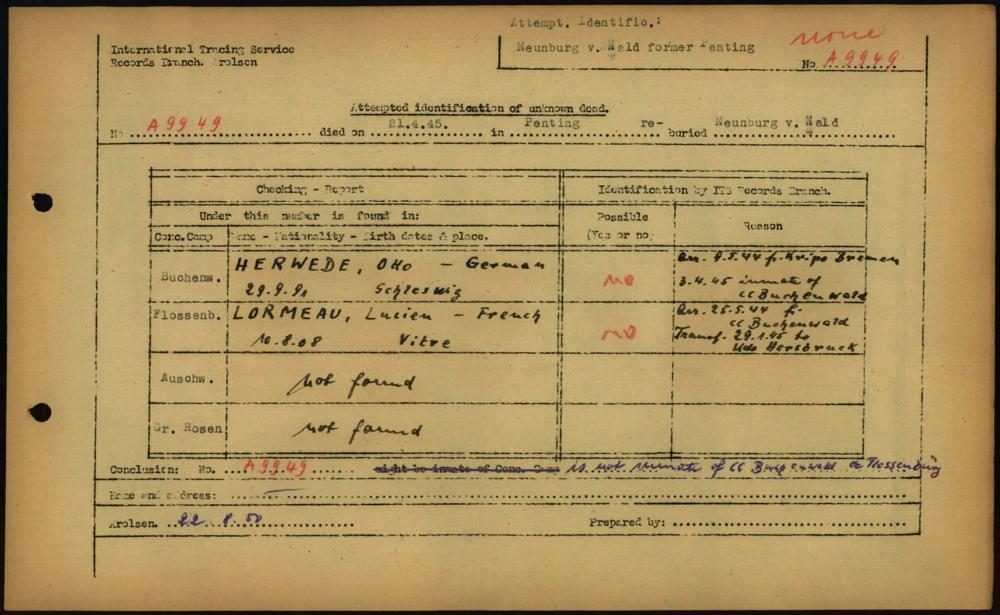 Attempt. Identific.:
Neunburg v. Wald former Penting
none
No A 9949
International Tracing Service
Records Branch. Arolsen
Attempted identification of unknown dead.
No A 9949 died on 21.4.45. in Penting re-buried Neunburg v. Wald
Checking - Report
Identification by ITS Records Branch.
Under this number is found in:
Possible
(Yes or no)
Reason
Conc.Camp
Name - Nationality - Birth dates & place.
Buchenw.
HERWEDE, Otto - German
29.9.91 Schleswig
no
Arr. 9.5.44 f. Kripo Bremen
3.4.45 inmate of
CC Buchenwald
Flossenb.
LORMEAU, Lucien - French
10.8.08 Vitre
no
Arr. 25.5.44 f.
CC Buchenwald
Transf. 29.1.45 to
Kdo Hersbruck
Auschw.
not found
Gr. Rosen
not found
Conclusion: No. A 9949 might be inmate of Conc. Camp is not inmate of CC Buchenwald or Flossenbürg
Name and address:
Arolsen. 22.8.50
Prepared by: